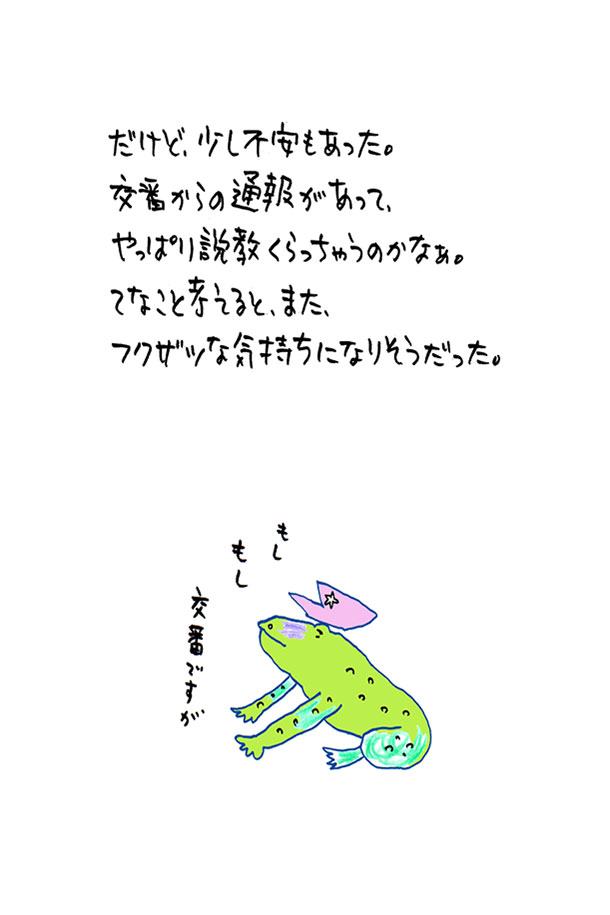 だけど、少し不安もあった。
交番からの通報があって、
やっぱり説教くらっちゃうのかなぁ。
てなこと考えてると、また、
フクザツな気持ちになりそうだった。
もし
もし
交番ですが